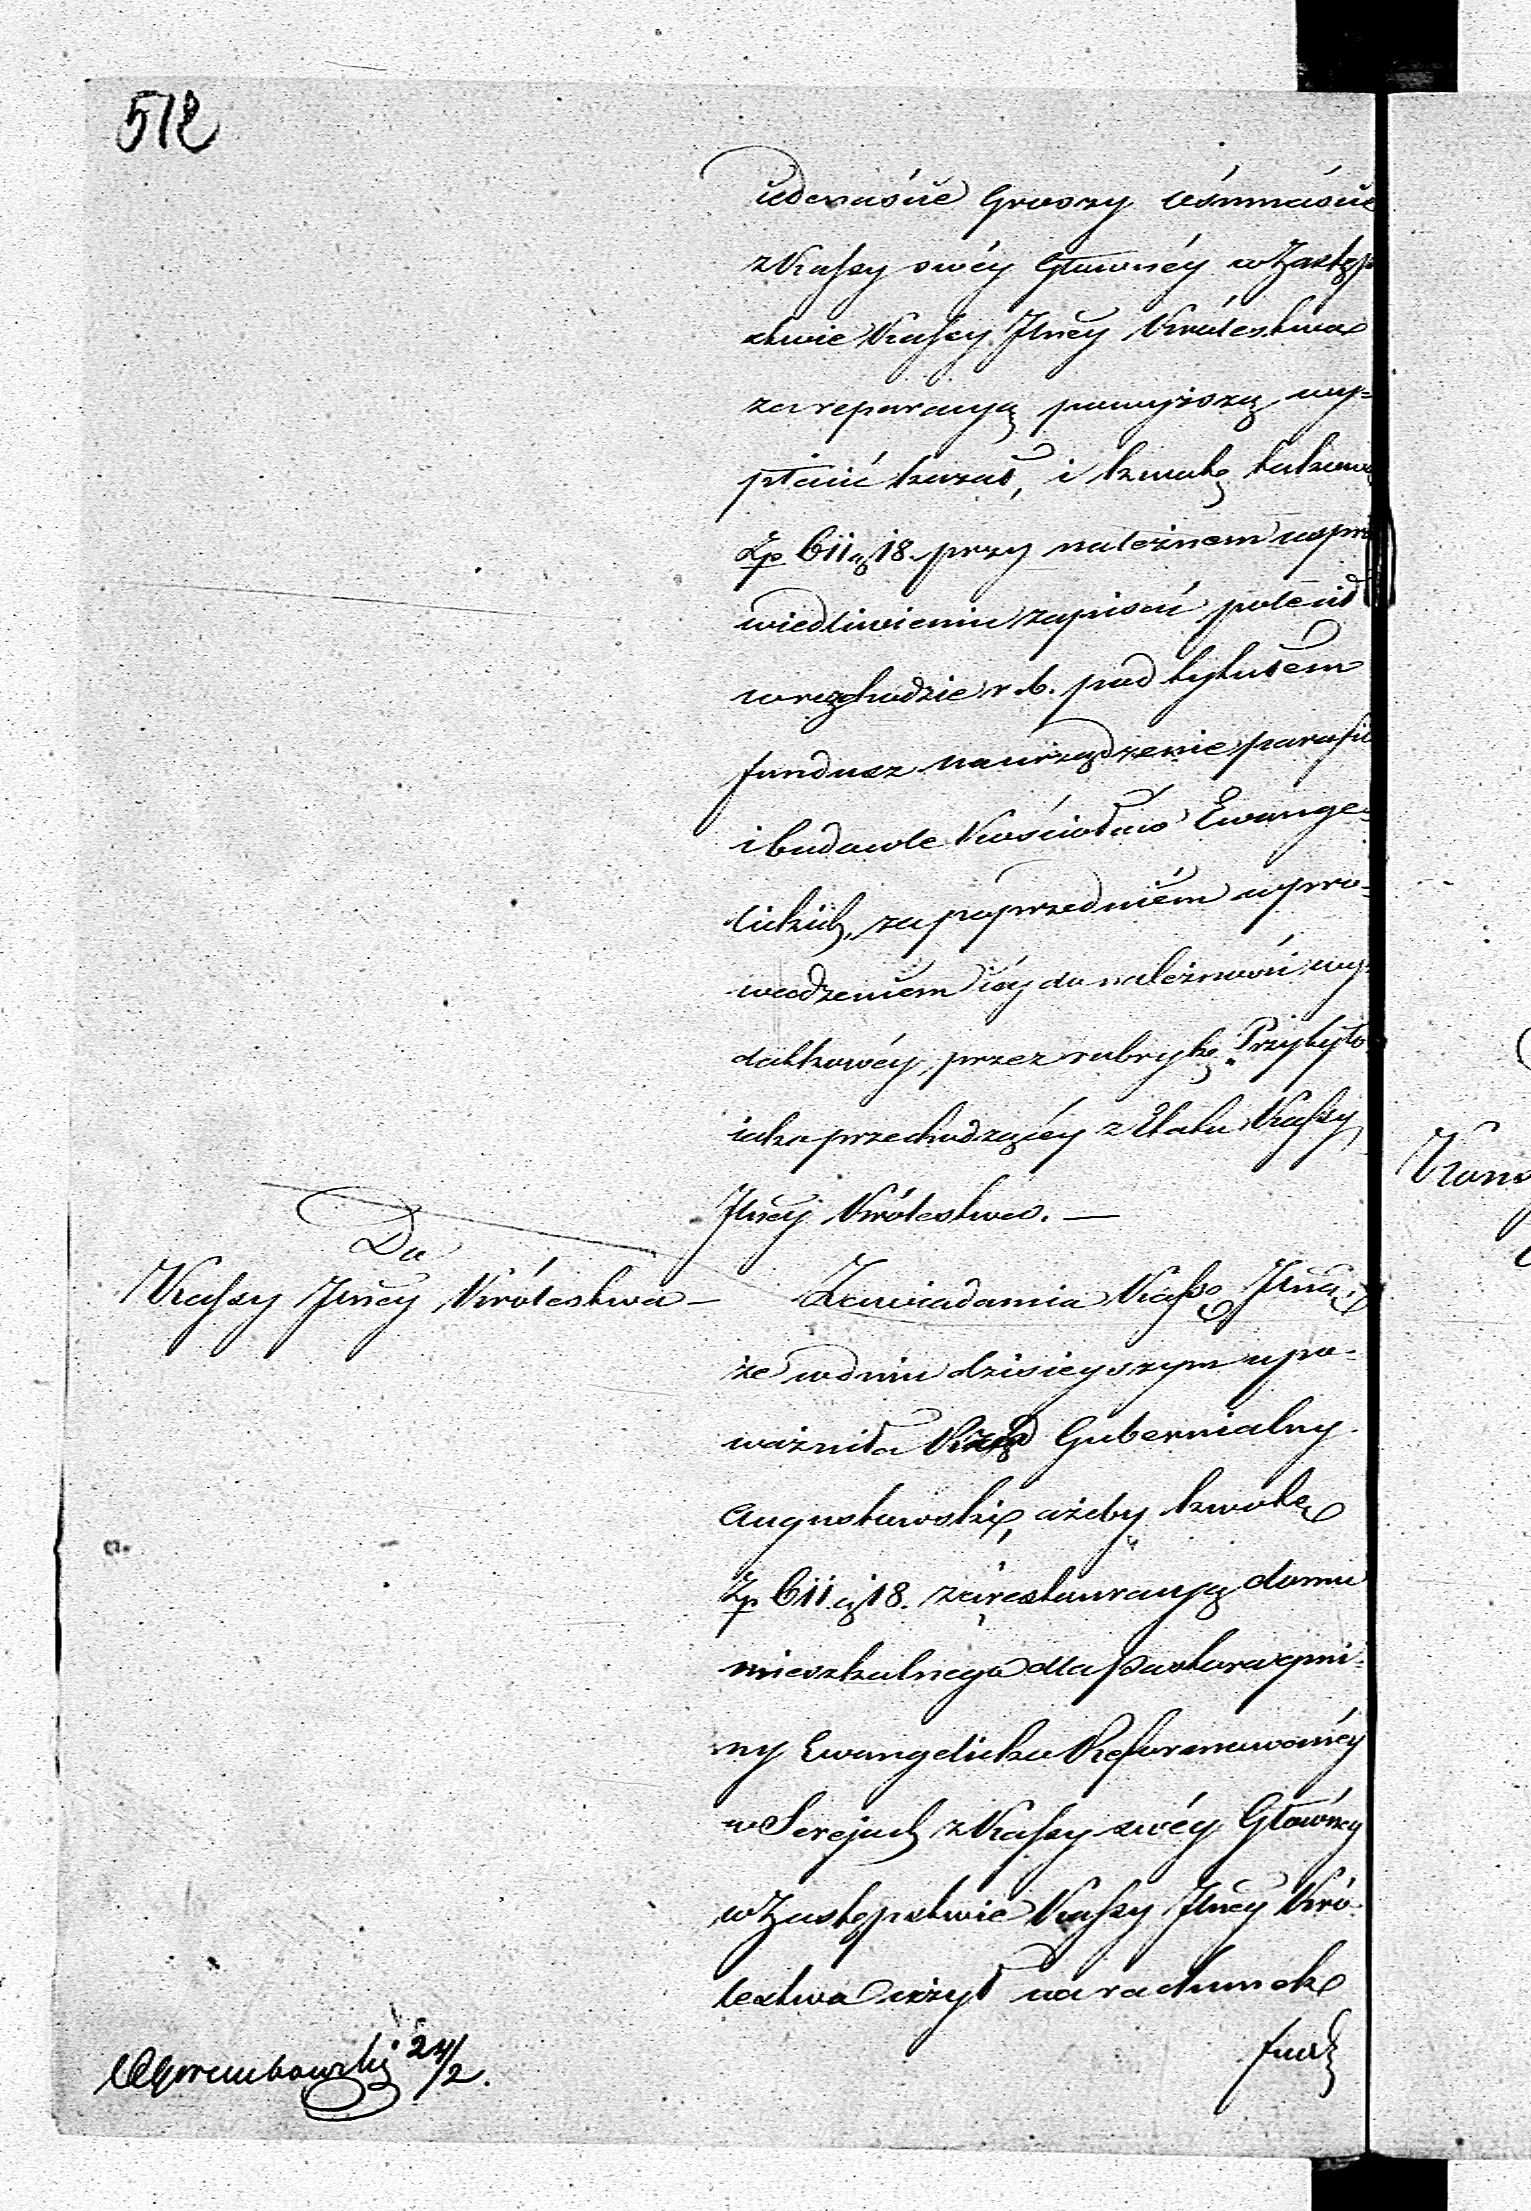 512
iedenaście Groszy ośmnaście
z Kassy swéy Głównéy w Zastęp
stwie Kassy Jlnéy Królestwa
za reparacyą powyższą wy=
płacić kazał, i kwotę takową
Zp 611 g 18. przy należnem uspra
wiedliwieniu zapisać polecił
w rozchodzie r. b. pod tytułem
fundusz na urządzenie parafii
i budowle Kościołów Ewange=
lickich, za poprzedniém wpro=
wadzeniem iéy do należności wy=
datkowéy, przez rubrykę "Przybyło"
iako przechodzącéy z Etatu Kassy
Jlnéy Królestwa. —
Do
Kassy Jlnéy Królestwa —
Zawiadamia Kassę Jlną,
że w dniu dzisieyszym upo=
ważniła Rząd Gubernialny
Augustowski, ażeby kwotę
Zp 611 g 18. za restauracyą domu
mieszkalnego dla Pastora gmi=
ny Ewangelicko Reformowanéy
w Serejach z Kassy swéy Głównéy
w Zastępstwie Kassy Jlnéy Kró=
lestwa użył na rachunek
24/2.